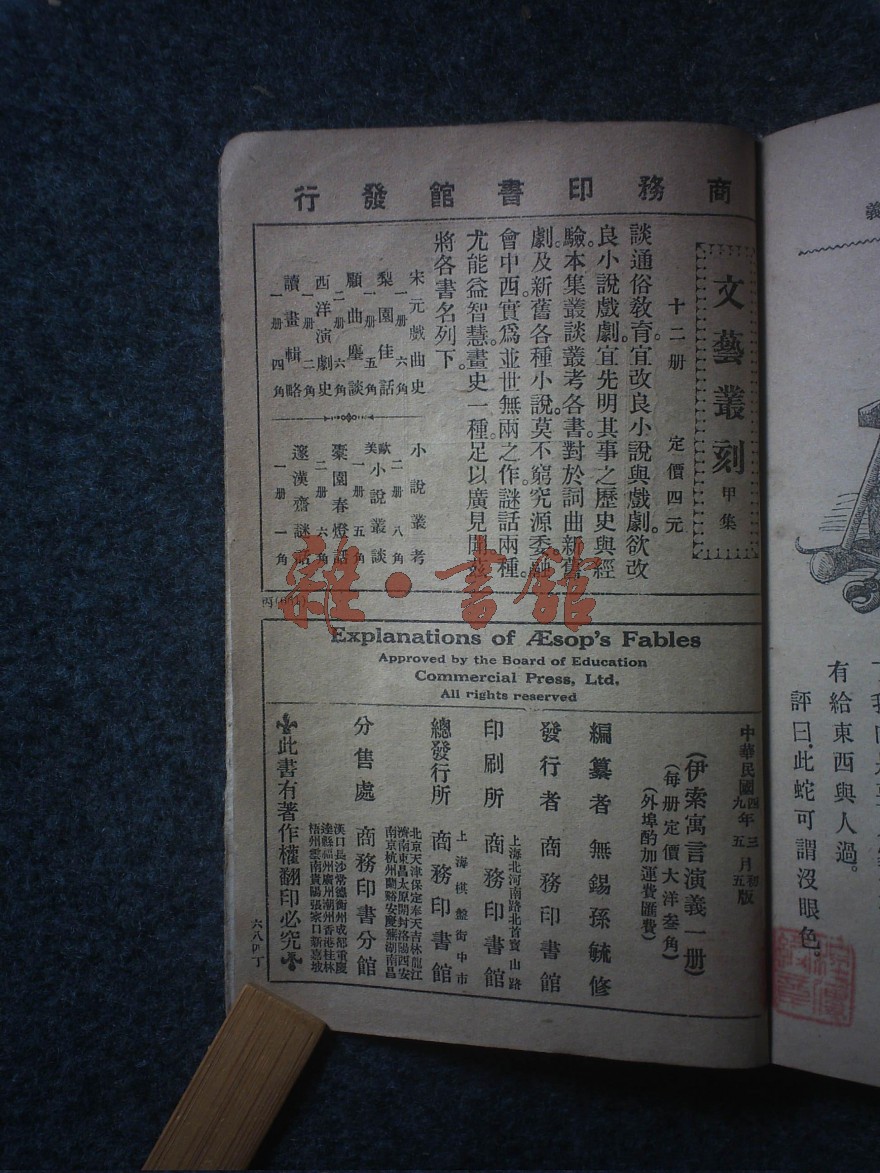 商務印書館發行
文藝叢刻甲集
十二册 定價四元
談通俗教育。宜改良小說與戲劇。欲改
良小說戲劇。宜先明其事之歷史與經
驗。本集叢談叢考各書。對於詞曲新舊
劇。及新舊各種小說。莫不窮究源委。融
會中西。實爲並世無兩之作。謎話兩種。
尤能益智慧。畫史一種。足以廣見聞。茲
將各書名列下。
宋元戲曲史 一册 六角
梨園佳話 一册 五角
顧曲麈談 二册 六角
西洋演劇史 一册 二角
讀畫輯略 一册 四角
小說叢考 二册 八角
歐美小說叢談 一册 五角
橐園春燈話 二册 六角
邃漢齋謎話 一册 一角
雜·書館
Explanations of Æsop's Fables
Approved by the Board of Education
Commercial Press, Ltd.
All rights reserved
中華民國四年三月初版
九年五月五版
(伊索寓言演義一册)
(每册定價大洋叁角)
(外埠酌加運費匯費)
編纂者 無錫孫毓修
發行者 商務印書館
上海北河南路北首寶山路
印刷所 商務印書館
上海棋盤街中市
總發行所 商務印書館
北京天津保定奉天吉林龍江
濟南東昌太原開封洛陽西安
南京杭州蘭谿安慶蕪湖南昌
分售處 商務印書分館
漢口長沙常德衡州成都重慶
達縣福州廣州潮州香港桂林
梧州雲南貴陽張家口新嘉坡
此書有著作權翻印必究
六八四丁
義
有給東西與人過。
評曰。此蛇可謂沒眼色。